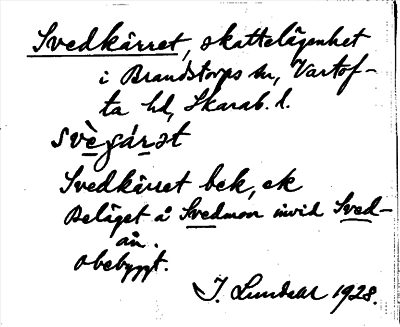 Svedkärret, skattelägenhet
i Brandstorps sn, Vartof-
ta hd, Skarab. l.
svègár̲ət
Svedkärret bek, ek
Beläget å Svedmon invid Sved-
ån.
Obebyggt.
J. Lundahl 1928.